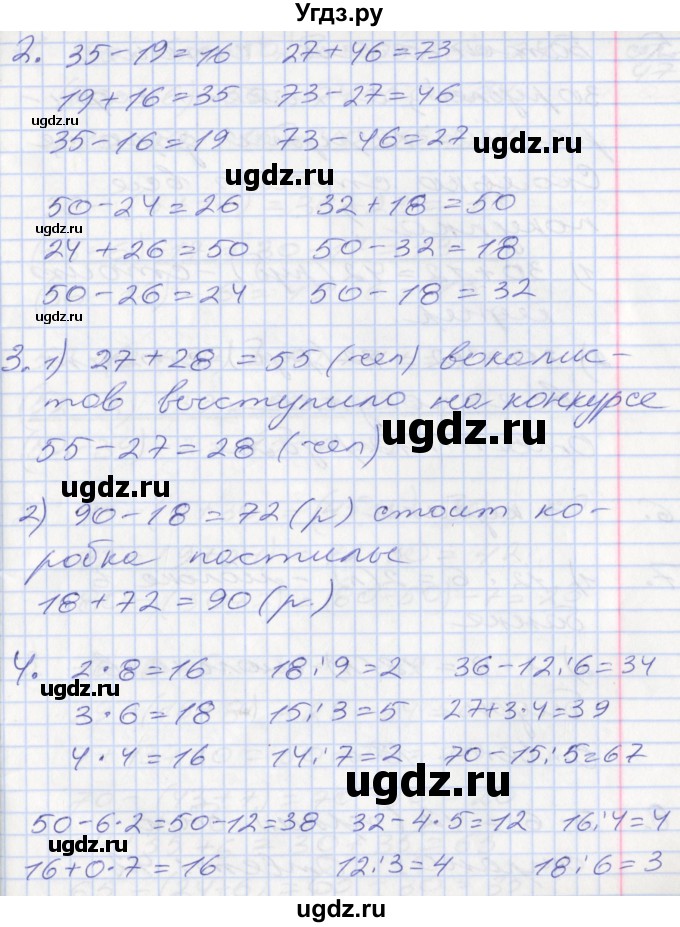 Угдз.ру
2. 35-19=16 27+46=73
19+16=35 73-27=46
ugdz.ru
35-16=19 73-46=27
ugdz.ru ugdz.ru
50-24=26 32+18=50
24+26=50 50-32=18
50-26=24 50-18=32
ugdz.ru
3. 1) 27+28=55 (чел) вокалис-
тов выступило на конкурсе
ugdz.ru
55-27=28 (чел)
ugdz.ru
2) 90-18=72 (р) стоит ко-
робка пастилы
18+72=90 (р.)
4. 2·8=16 18:9=2 36-12:6=34
ugdz.ru
3·6=18 15:3=5 27+3·4=39
4·4=16 14:7=2 70-15:5=67
ugdz.ru
50-6·2=50-12=38 32-4·5=12 16:4=4
ugdz.ru
16+0·7=16 12:3=4 18:6=3
ugdz.ru